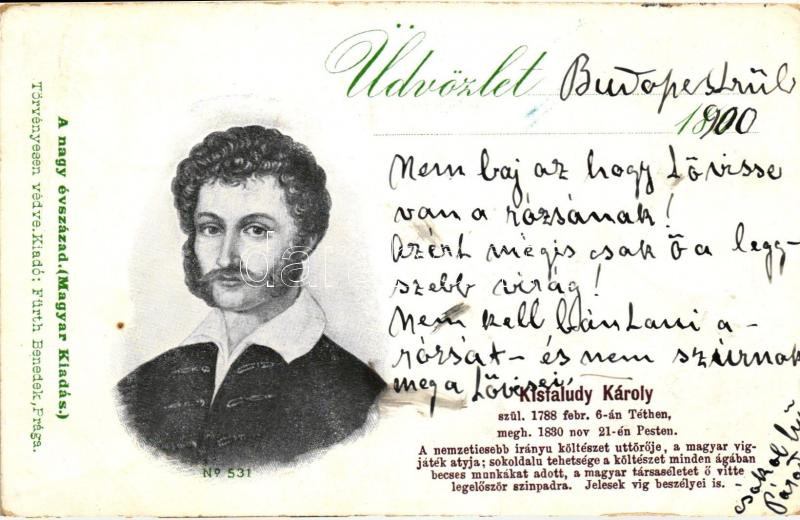 Üdvözlet Budapestrül
1900
Nem baj az hogy tövisse
van a rózsának!
Azért mégis csak ő a legg-
szebb virág!
Nem kell bántani a-
rózsát - és nem szúrnak
meg a tövisei,
Kisfaludy Károly
szül. 1788 febr. 6-án Téthen,
megh. 1830 nov 21-én Pesten.
A nemzetiesebb irányu költészet uttörője, a magyar vig-
játék atyja; sokoldalu tehetsége a költészet minden ágában
becses munkákat adott, a magyar társaséletet ő vitte
legelőször szinpadra. Jelesek vig beszélyei is.
csókol hű
Nº 531
A nagy évszázad.(Magyar Kiadás.)
Törvényesen védve.Kiadó: Fürth Benedek,Prága.